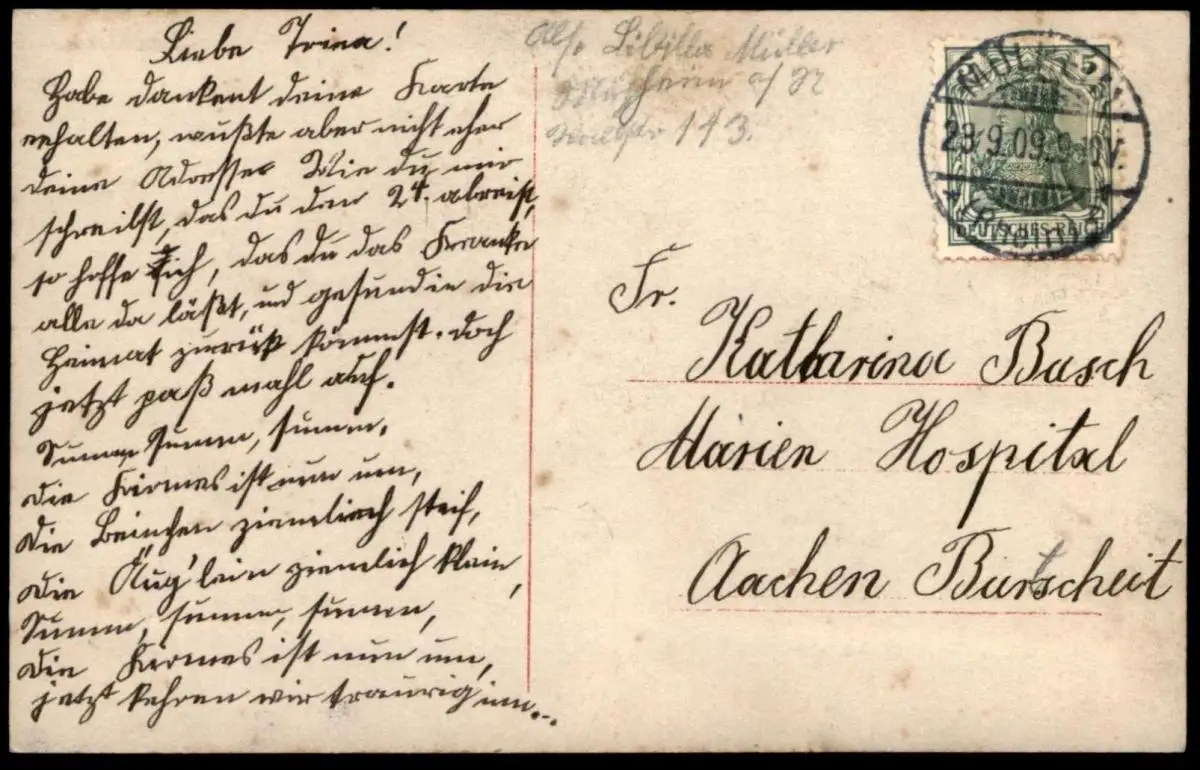 Liebe Trina!
Habe dankent deine Karte
erhalten, wußte aber nicht eher
deine Adresse. Wie du mir
schreibst, das du den 24. abreist,
so hoffe ich, das du das Kranke
alle da läßt, und gesund in die
Heimat zurück kömmst. Doch
jetzt paß mahl auf.
Summ summ, summ,
die Kirmes ist nun um,
die Beinchen ziemlich steif,
die Äug'lein ziemlich klein,
Summ, summ, summ,
die Kirmes ist nun um,
jetzt kehren wir traurig um...
Abs. Sibilla Müller
Mülheim a/ R
143.
MÜLHEIM
23.9.09.
(RHEIN)
DEUTSCHES REICH
Fr.
Katharina Busch
Marien Hospital
Aachen Burtscheit